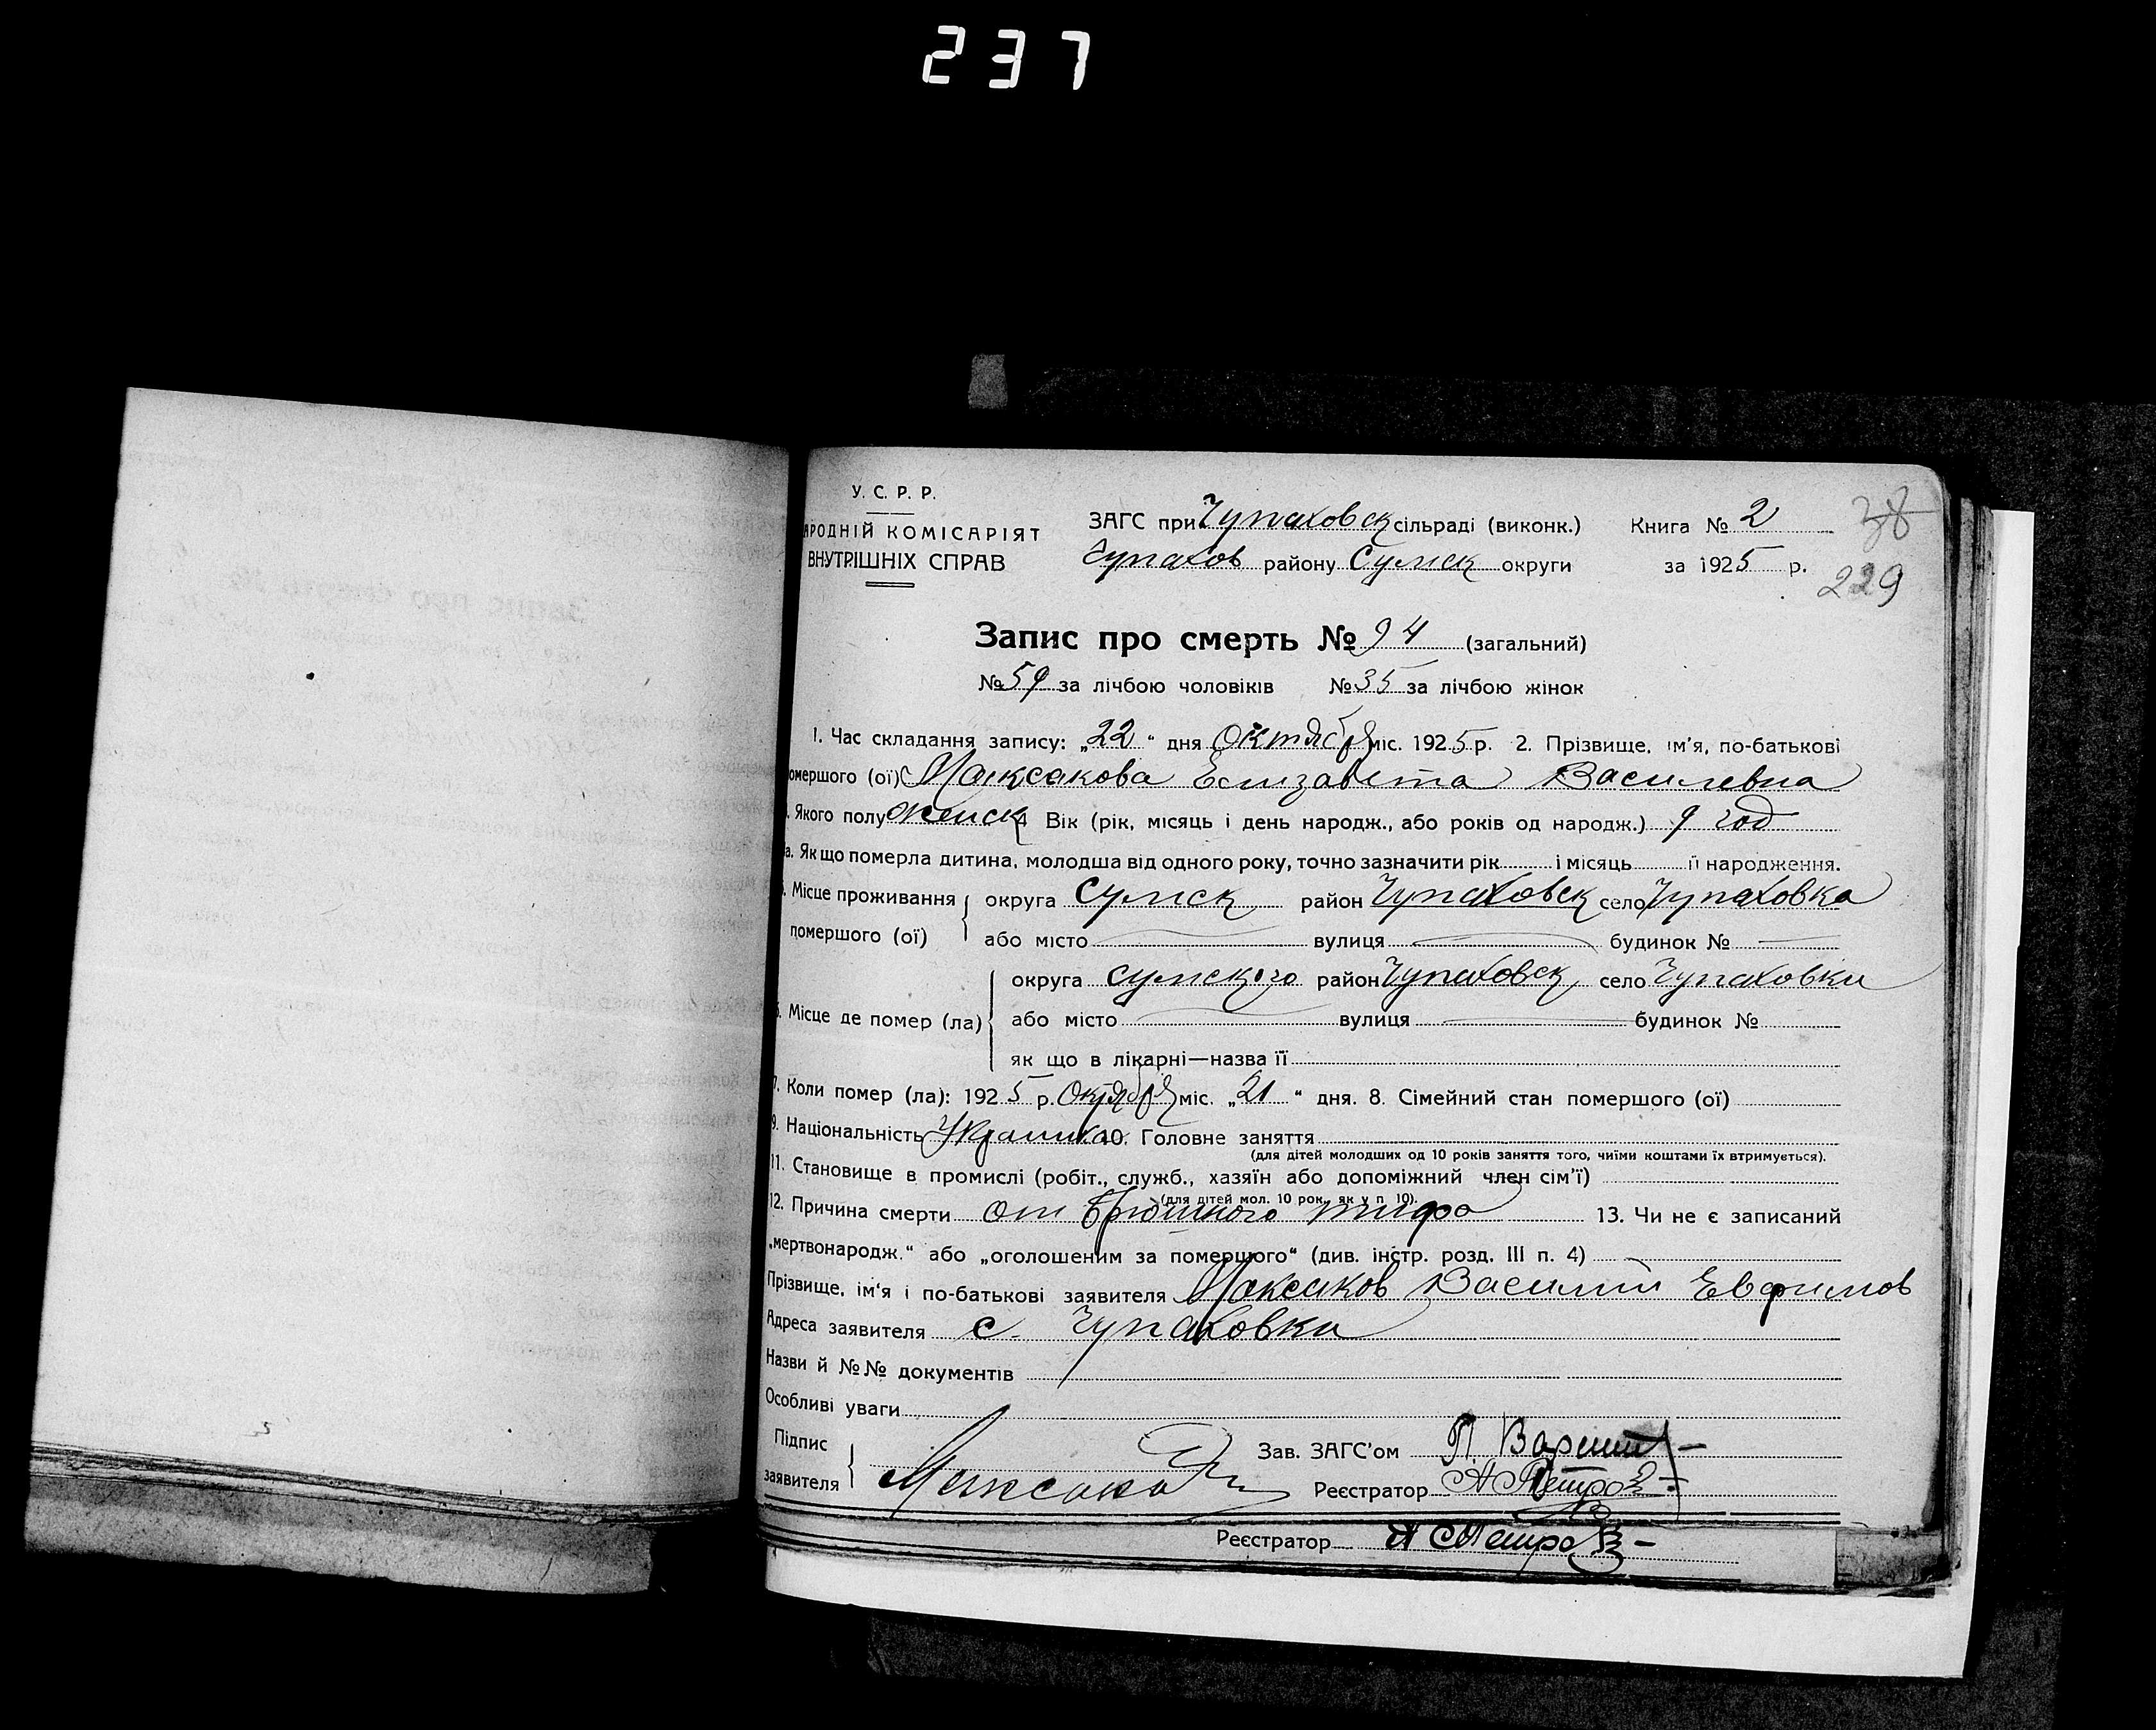 237
У. С. Р. Р.
АРОДНІЙ КОМІСАРІЯТ
ВНУТРІШНІХ СПРАВ
ЗАГС при Чупаховск сільраді (виконк.) Книга № 2
38
Чупахов району Сумск округи за 1925 р.
229
Запис про смерть № 94 (загальний)
№ 59 за лічбою чоловіків № 35 за лічбою жінок
1. Час складання запису: „22“ дня Октября міс. 1925 р. 2. Прізвище, ім'я, по-батькові
омершого (ої) Максакова Елизавета Василевна
. Якого полу женск 4 Вік (рік, місяць і день народж., або років од народж.) 9 год
а. Як що померла дитина, молодша від одного року, точно зазначити рік і місяць її народження.
. Місце проживання
помершого (ої)
округа Сумск район Чупаховск село Чупаховка
або місто вулиця будинок №
. Місце де помер (ла)
округа Сумского район Чупаховск село Чупаховки
або місто вулиця будинок №
як що в лікарні—назва її
7. Коли помер (ла): 1925 р. Октября міс. „21“ дня. 8. Сімейний стан помершого (ої)
9. Національність Украинка 10. Головне заняття
(для дітей молодших од 10 років заняття того, чиїми коштами їх втримується).
11. Становище в промислі (робіт., служб., хазяїн або допоміжний член сім'ї)
(для дітей мол. 10 рок. як у п 10).
12. Причина смерти от брюшного тифа 13. Чи не є записаний
„мертвонародж.“ або „оголошеним за помершого“ (див. інстр. розд. III п. 4)
Прізвище, ім'я і по-батькові заявителя Максаков Василий Евфимов
Адреса заявителя с. Чупаховки
Назви й №№ документів
Особливі уваги
Підпис
заявителя
Максако
Зав. ЗАГС'ом П.
Реєстратор А Петров
Реєстратор А Петров